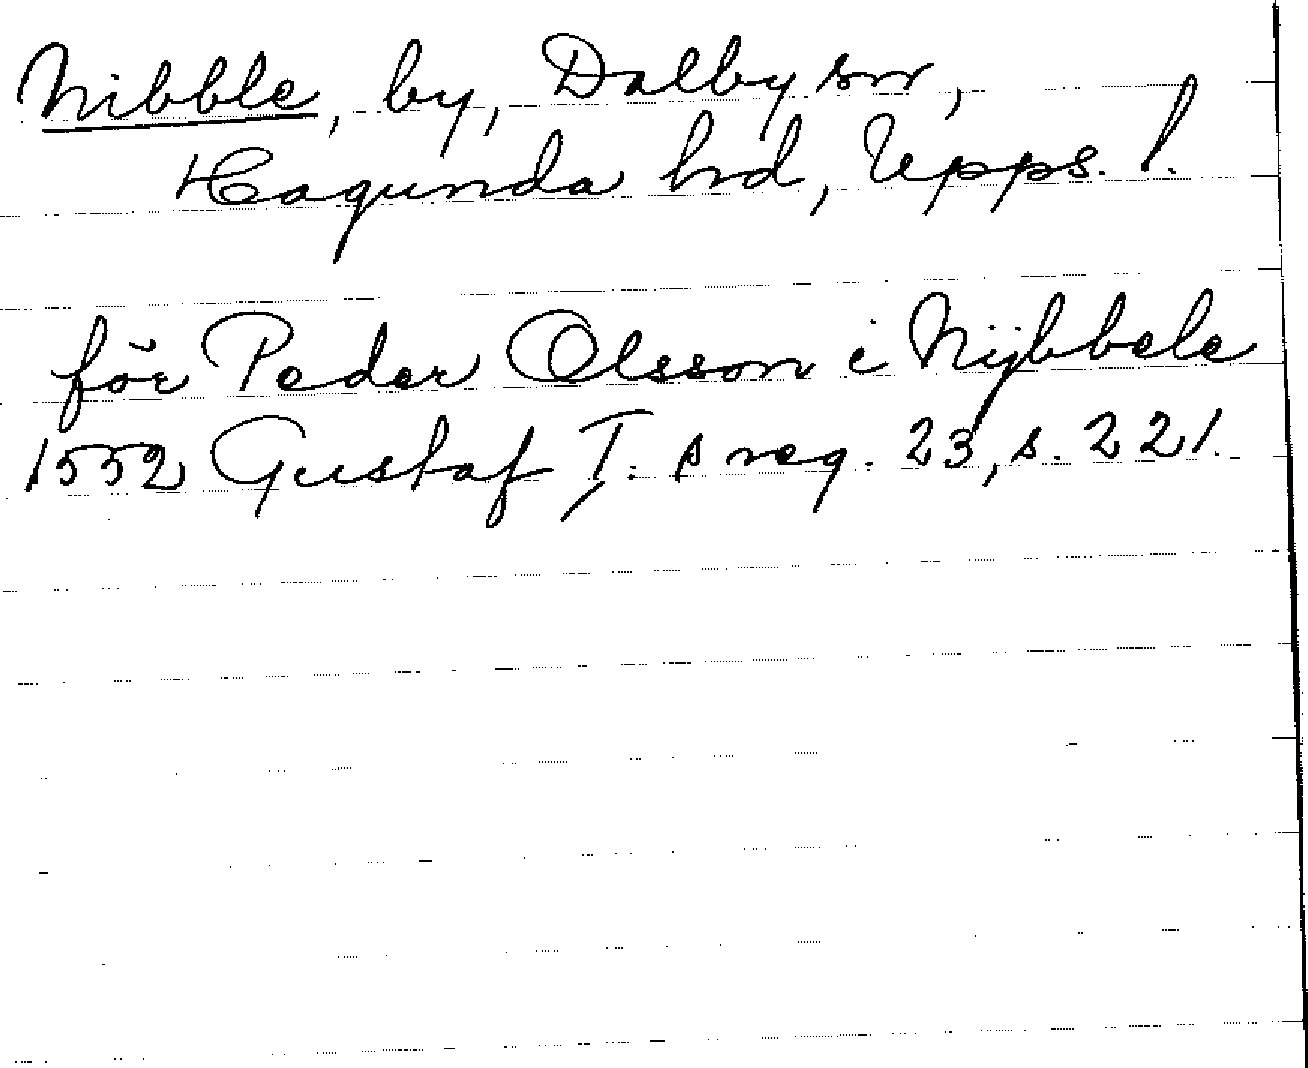 Nibble, by, Dalby sn,
Hagunda hd, Upps. l.
för Peder Olsson i Nijbbele
1552 Gustaf I:s reg. 23, s. 221.